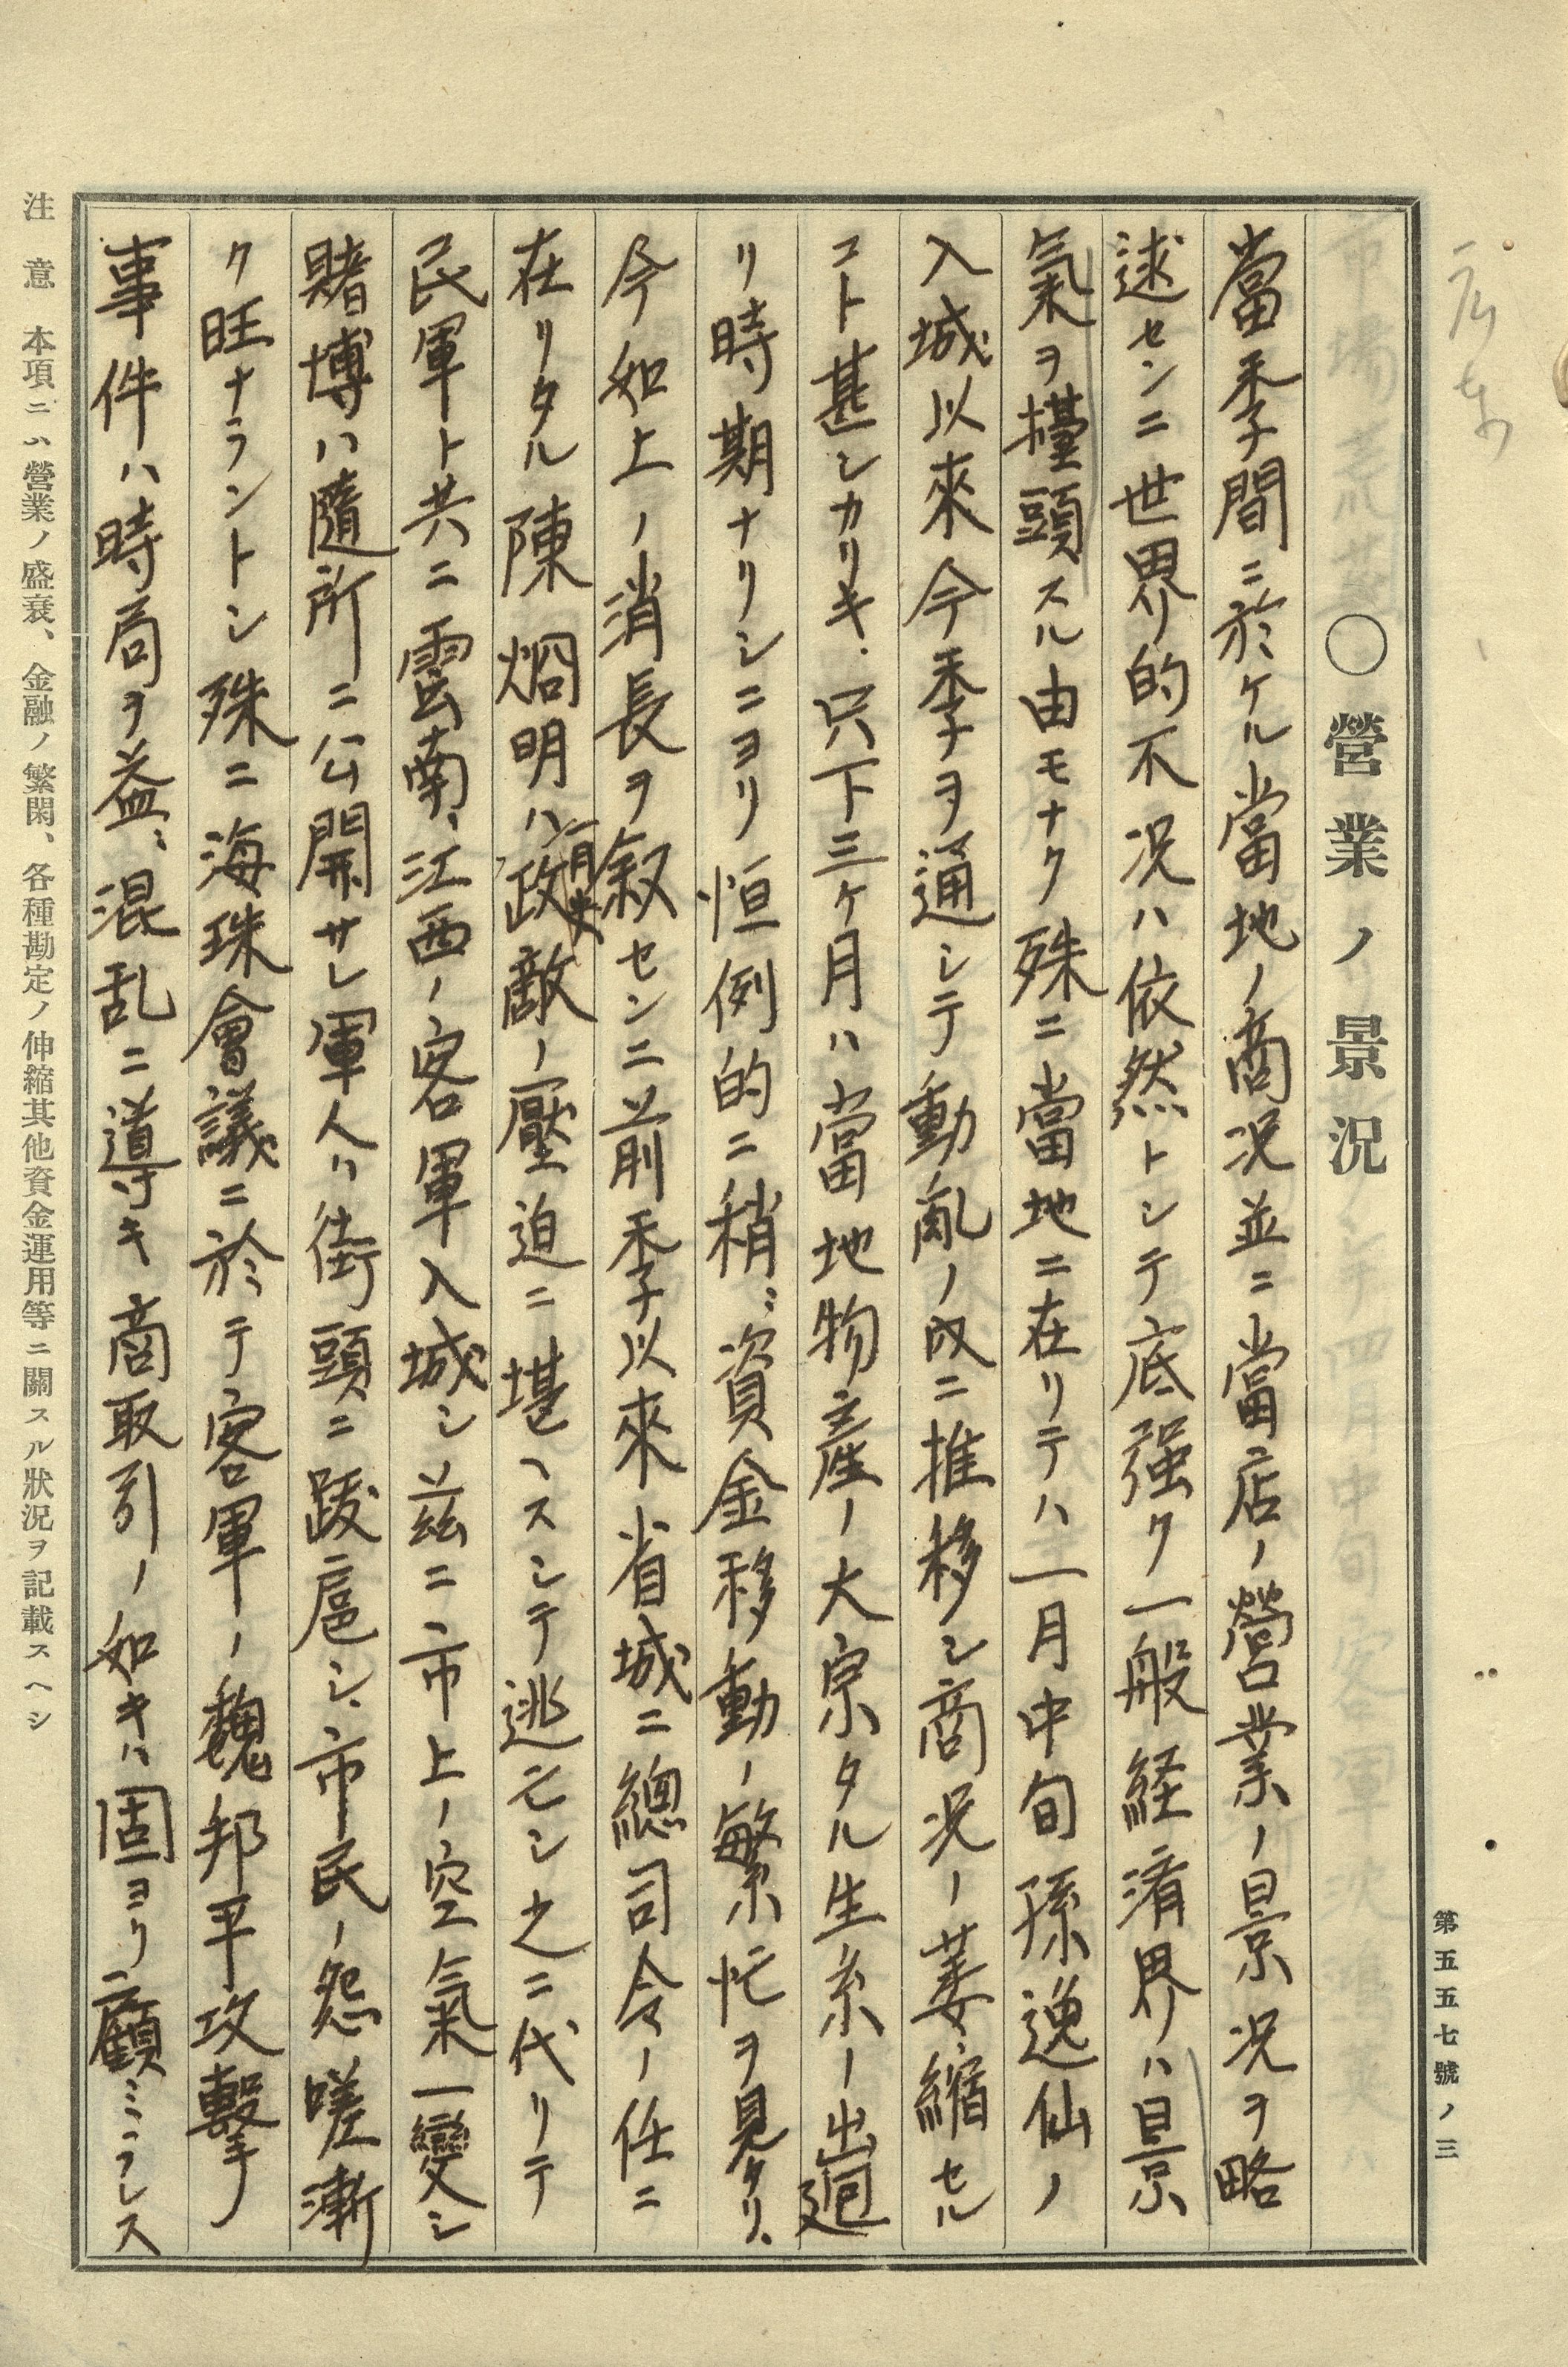 廣東
第五五七號ノ三
〇營業ノ景況
當季間ニ於ケル當地ノ商况並ニ當店ノ營業ノ景况ヲ略
述センニ世界的不况ハ依然トシテ底强ク一般経済界ハ景
氣ヲ擡頭スル由モナク殊ニ當地ニ在リテハ一月中旬孫逸仙ノ
入城以來今季ヲ通シテ動亂ノ内ニ推移シ商况ノ萎縮セル
コト甚シカリキ.只下三ケ月ハ當地物産ノ大宗タル生糸ノ出廻
リ時期ナリシニヨリ恒例的ニ稍〻資金移動ノ繁忙ヲ見タリ、
今如上ノ消長ヲ叙センニ前季以來省城ニ總司令ノ任ニ
在リタル陳烱明ハ一月央政敵ノ壓迫ニ堪ヘスシテ逃亡シ之ニ代リテ
民軍ト共ニ雲南、江西ノ客軍入城シ茲ニ市上ノ空氣一變シ
賭博ハ隨所ニ公開サレ軍人ハ街頭ニ跋扈シ、市民ノ怨嗟漸
ク旺ナラントシ殊ニ海珠會議ニ於テ客軍ノ魏邦平攻擊
事件ハ時局ヲ益〻混乱ニ導キ商取引ノ如キハ固ヨリ顧ミラレス
注意 本項ニハ營業ノ盛衰、金融ノ繁閑、各種勘定ノ伸縮其他資金運用等ニ關スル狀況ヲ記載スヘシ